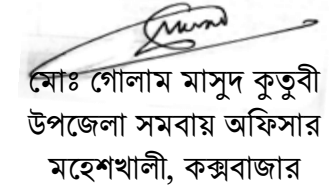 মোঃ গোলাম মাসুদ কুতুবী
উপজেলা সমবায় অফিসার
মহেশখালী, কক্সবাজার